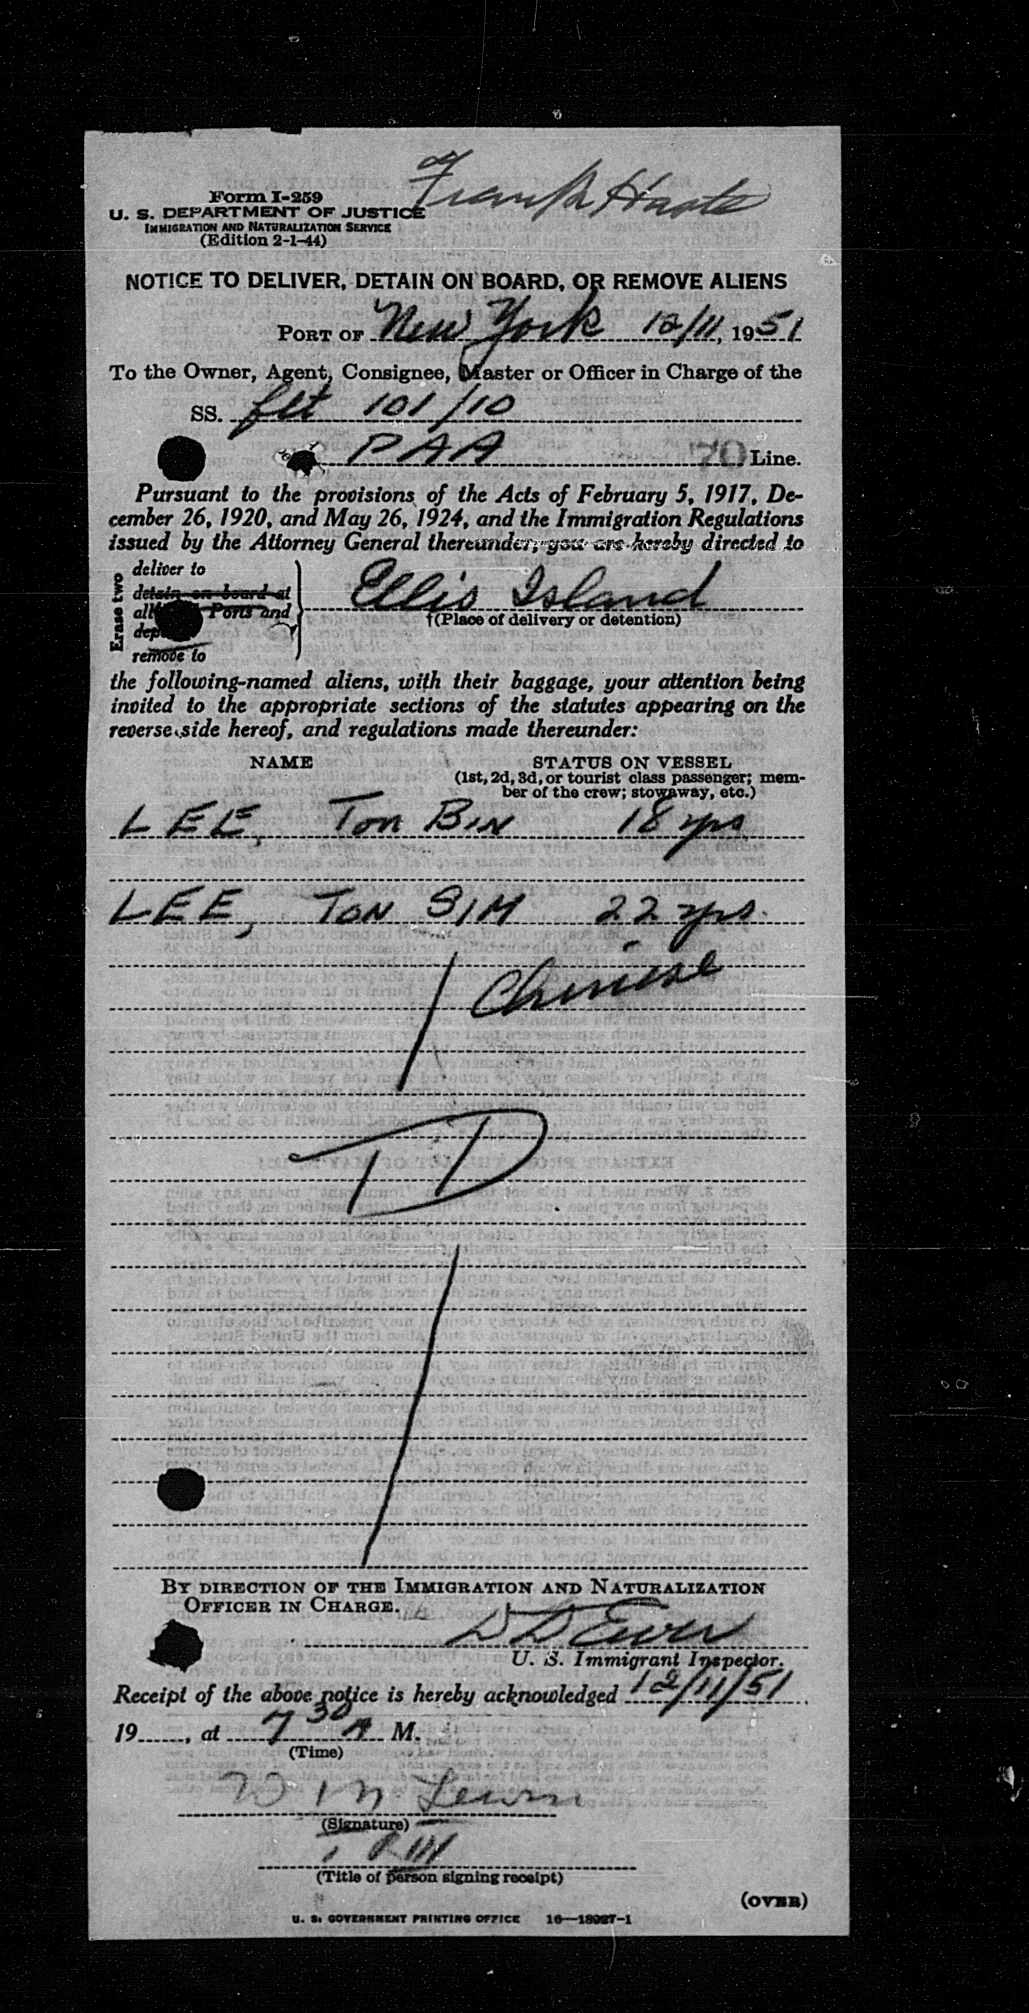 Frank
Form I-259
U. S. DEPARTMENT OF JUSTICE
IMMIGRATION AND NATURALIZATION SERVICE
(Edition 2-1-44)
NOTICE TO DELIVER, DETAIN ON BOARD, OR REMOVE ALIENS
PORT OF New York 12/11, 1951
To the Owner, Agent, Consignee, Master or Officer in Charge of the
SS. flt 101/10
PAA 70 Line.
Pursuant to the provisions of the Acts of February 5, 1917, De-
cember 26, 1920, and May 26, 1924, and the Immigration Regulations
issued by the Attorney General thereunder, you are hereby directed to
Erase two
deliver to
detain on board at
all Ports and
remove to
Ellis Island
†(Place of delivery or detention)
the following-named aliens, with their baggage, your attention being
invited to the appropriate sections of the statutes appearing on the
reverse side hereof, and regulations made thereunder:
NAME STATUS ON VESSEL
(1st, 2d, 3d, or tourist class passenger; mem-
ber of the crew; stowaway, etc.)
LEE, TON BIN 18 yrs
LEE, TON SIM 22 yrs.
Chinese
TD
BY DIRECTION OF THE IMMIGRATION AND NATURALIZATION
OFFICER IN CHARGE.
U. S. Immigrant Inspector.
Receipt of the above notice is hereby acknowledged 12/11/51
19......, at 7 30 A M.
(Time)
(Signature)
(Title of person signing receipt)
(OVER)
U. S. GOVERNMENT PRINTING OFFICE 16—18927-1